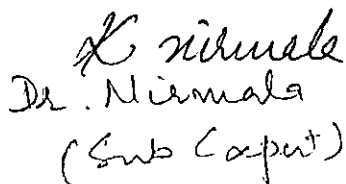 K Nirmala
Dr. Nirmala
(Sub Expert)